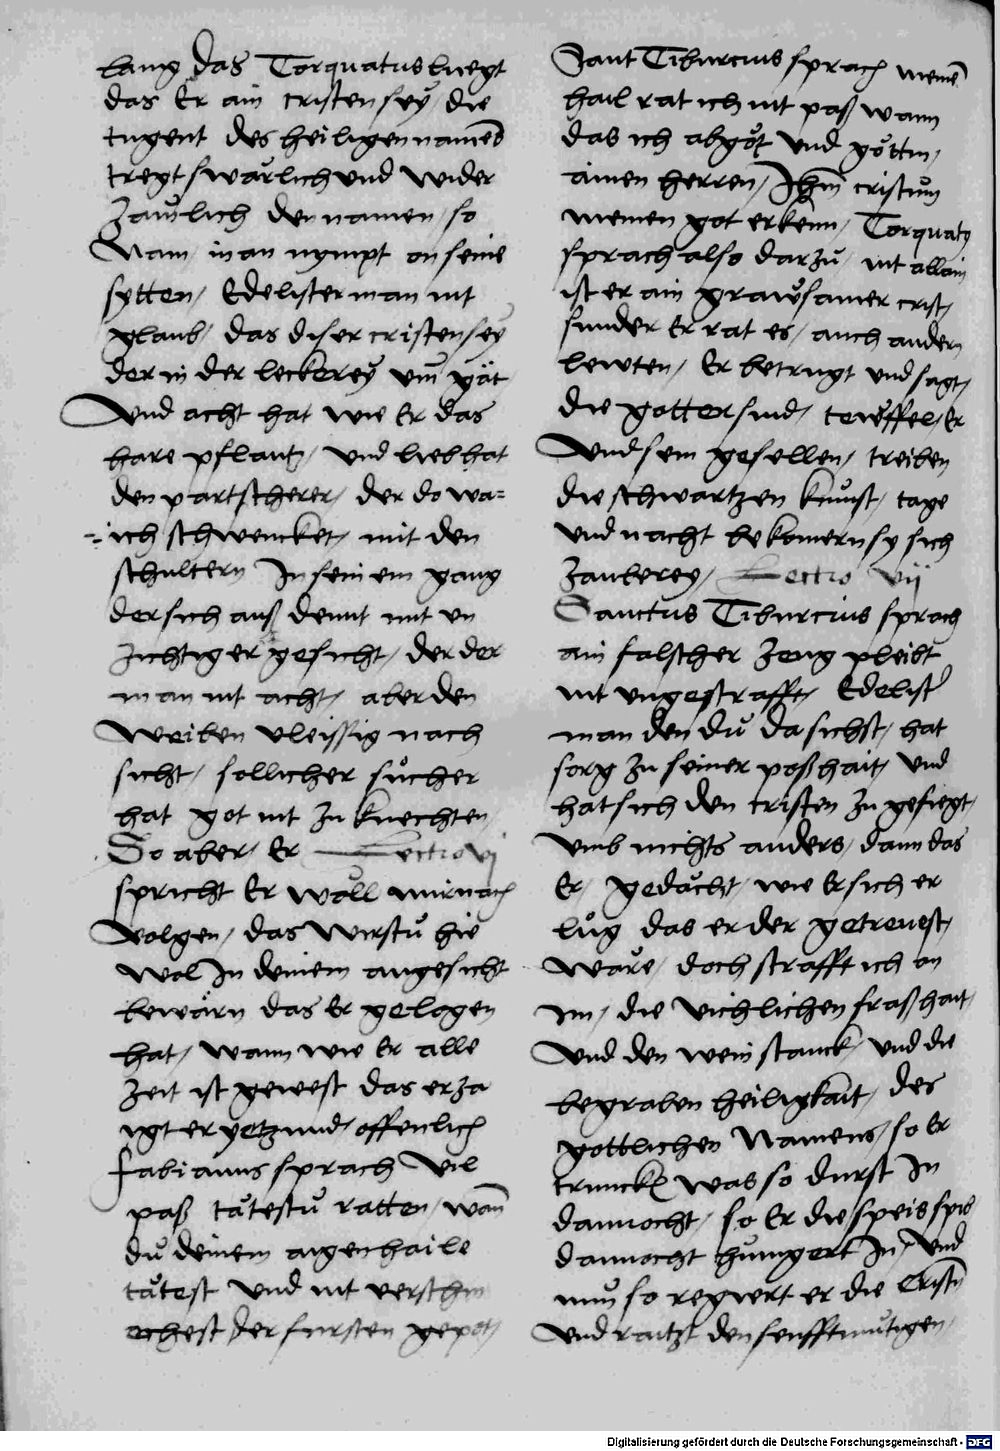 lang das Torquatus luegt
das Er ain cristen sey / die
tugent des heiligen namens
tregt swarlich und wider
zaumlich den namen / so
Nam / man nympt an seine
sytten / Edelister man nit
glaub / das diser cristen sey
der in der leckerey umb gat
Und acht hat wie Er das
hare pflantz / und lieb hat
den partscherer / der do wa=
=ich schwencket / mit den
schultern In sein em gang
der sich auß dennt mit un
zichtiger gesicht / der der
man nit acht / aber den
Weiben vleissig nach
sicht / sollicher sücher
hat got nit zu knechten
So aber / Er Lectio vj
spricht Er wöll mir nach
Volgen / das wirstu hie
wol In deinem angesicht
bewärn das Er gelogen
hat / wann wie Er alle
Zeit ist gewest das erza
igt er yetzund / offenlich
fabianus sprach Vil
paß tätestu ratten / wann
du deinem aigen haile
tätest und nit versch
echest der fürsten gepot /
Sant Tiburcius sprach meinē
hail rat ich nit paß wann
das ich abgöt und göttin /
ainen herren / Jhm cristum
meinen got erkenn / Torquatg
sprach also darzu / nit allain
ist er ain grawsamer crist /
sunder Er rat es / auch andern
lewten / Er betrugt und sagt /
die gotter sind / tewffel / Er
Und sein gesellen / treiben
die schwartzen kunst / tage
und nacht bekomern sy sich
Zauberey / Lectio vij
Sanctus Tiburcius sprach
ain falscher Zeug pleibt
nit ungestrafft / Edelist
man den du da sichst / hat
sorg zu seiner poßhait / und
hat sich den cristen zu gefiegt /
umb nichts anders / dann das
Er / gedächt / wie Er sich er
lug das er der getreuest /
wäre / doch strafft ich an
im / die vichlichen fraßhait /
Und den wein stanck / und die
begraben heiligkait / des
gottlichen Namens / so Er
trincket was so durst In
dannocht / so Er die speis speis
dannocht hungert In / und
nun so regiert er die Cristn
Und raitzt den senfftmutigen /
Digitalisierung gefördert durch die Deutsche Forschungsgemeinschaft - DFG